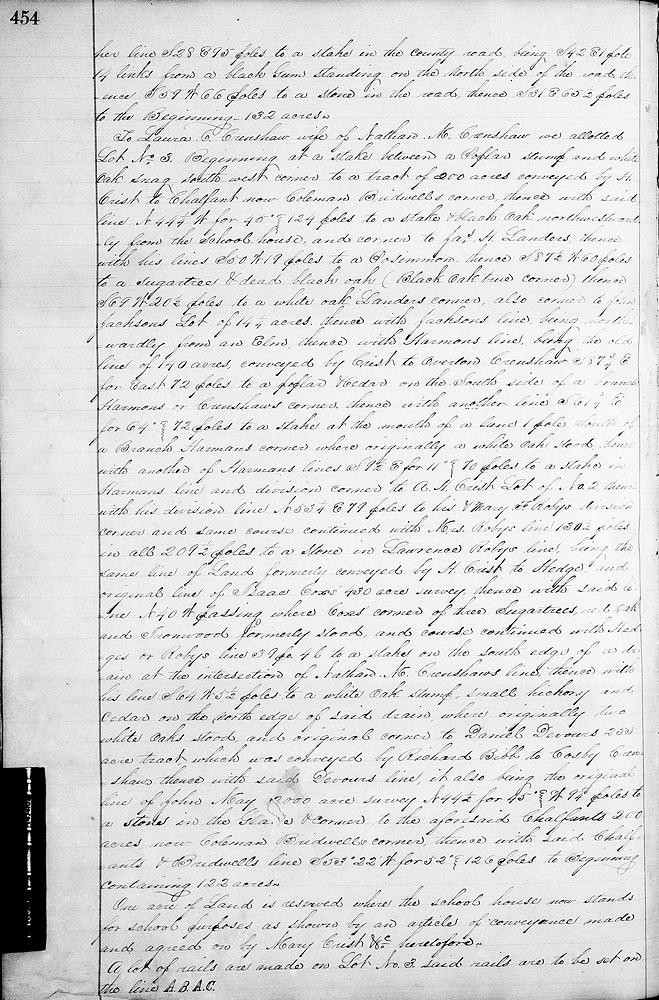 454
her line S28 E95 poles to a stake in the county road being S42 E1 pole
14 links from a black Gum standing on the North side of the road th-
ence S59 W66 poles to a stone in the road thence S31 E63 2 poles
to the Beginning 132 acres.
To Laura C. Crenshaw wife of Nathan M. Crenshaw we allotted
Lot No. 3. Beginning at a stake between a Poplar stump and white
Oak snag south west corner to a tract of 200 acres conveyed by H.
Crist to Chalfant now Coleman Bridwells corner, thence with said
line N 44½ W for 45° 124 poles to a stake & black Oak northwestward
-ly from the School house, and corner to Jas. H. Landers, thence
with his lines S50 W19 poles to a Persimmon thence S87½ W60 poles
to a Sugartree & dead black oak (Black Oak true corner) thence
S69 W20½ poles to a white oak Landers corner, also corner to John
Jacksons Lot of 14¼ acres. thence with Jacksons line, being north-
-wardly from an Elm, thence with Harmons line, being the old
line of 140 acres, conveyed by Crist to Overton Crenshaw S87¾ E
for East 72 poles to a poplar & Cedar on the South side of a branch
Harmons or Crenshaws corner, thence with another line S61¾ E
for 64° 72 poles to a stake at the mouth of a lane 1 pole South of
a Branch Harmans corner where originally a white Oak stood, thence
with another of Harmans lines S9½ E for 11° 70 poles to a stake in
Harmans line and division corner to A. H. Crist Lot of No. 2, thence
with his division line N55¼ E79 poles to his & Mary Robys division
corner and same course continued with Mrs. Robys line 130½ poles
in all 209½ poles to a stone in Lawrence Robys line, being the
same line of Land formerly conveyed by H. Crist to Hedge, and
original line of Isaac Coxs' 430 acre survey thence with said li-
-ne N40 W passing where Coxs' corner of three Sugartrees, red Oak
and Ironwood formerly stood, and course continued with Hed-
ges or Robys line 39 po. 46 to a stake on the south edge of a dr-
ain at the intersection of Nathan M. Crenshaws line, thence with
his line S64 W5½ poles to a white Oak stump, small hickory and
Cedar on the North edge of said drain, where originally two
white Oaks stood, and original corner to Daniel Devours 233
acre tract which was conveyed by Richard Bibb to Cosby Cren-
-shaw thence with said Devours line, it also being the original
line of John May 2000 acre survey N44½ for 45° W 94 poles to
a stone in the & corner to the aforesaid Chalfants 200
acres now Coleman Bridwells corner, thence with said Chalf-
-ants & Bridwells line S53° 22' W for 52° 126 poles to Beginning
Containing 122 acres.
One acre of Land is reserved where the school house now stands
for school purposes as shown by an article of conveyance made
and agreed on by Mary Crist &c heretofore.
A lot of rails are made on Lot No. 3. said rails are to be set on
the line A.B.A.C.